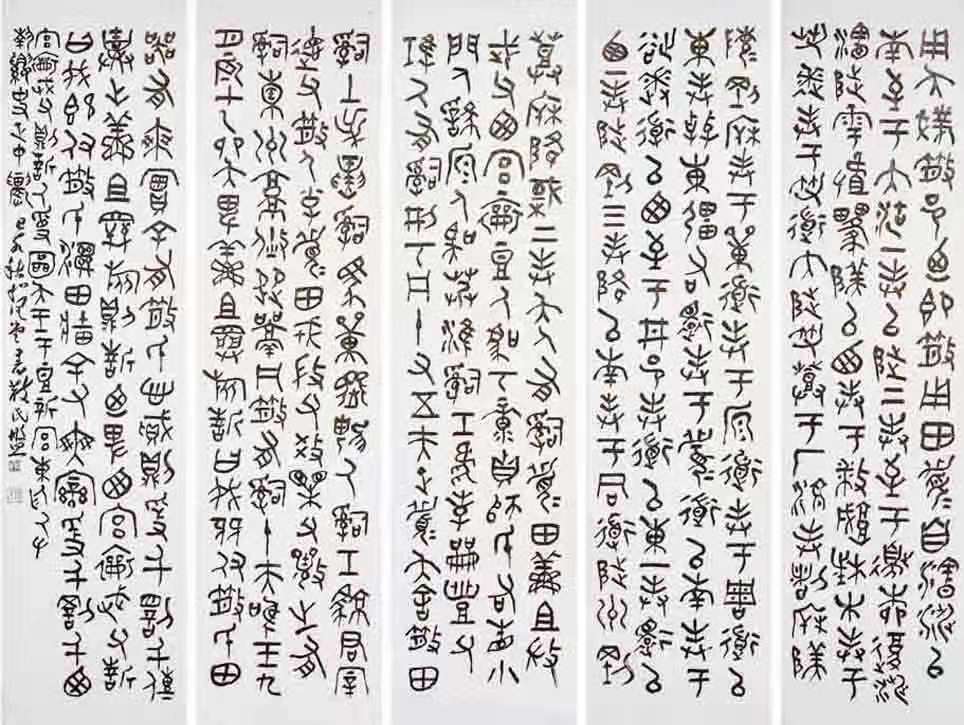 用夨散邑乃即散用田眉自瀗涉以
南至于大沽一封以陟二封至于邊柳復涉
瀗陟雩以西封于播城楮木封于
芻逨封于芻道內陟芻登于厂湶封剖𣏗
陵剛𣏗封于單道封于原道封于周道以
東封于東疆右還封于眉道以南封于
逨道以西至于井邑封道以東一封還以
西一封陟剛三封降以南封于同道陟州剛
登𣏗降棫二封夨人有司眉田鮮且微
武父西宮襄豆人虞丂彔貞師氏右眚小
門人繇原人虞艿淮司工虎孝開豐父
鴻人有司刑丂凡十又五夫正眉夨舍散田
司土逆寅司馬單邦人司工君宰
德父散人小子眉田戎微父效果父襄之有
司橐州就焂從凡散有司十夫唯王九
月辰在乙卯夨卑鮮且旅誓曰我既付散氏田
器有爽實余有散氏心賊則爰千罰千傳
棄之鮮且旅則誓乃卑西宮襄武父誓
曰我既付散氏濕田牆田余又爽變爰千罰千西
宮襄武父則誓厥受圖夨王于豆新宮東廷厥左
執史正中農 書散氏盤